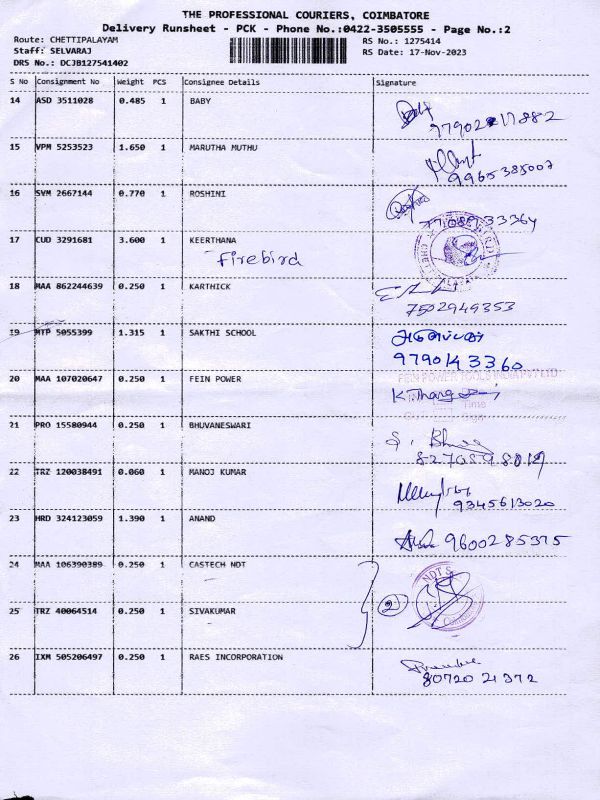 THE PROFESSIONAL COURIERS, COIMBATORE
Delivery Runsheet - PCK - Phone No.:0422-3505555 - Page No.:2
Route: CHETTIPALAYAM
RS No.: 1275414
Staff: SELVARAJ
RS Date: 17-Nov-2023
DRS No.: DCJB127541402
S No Consignment No Weight PCS Consignee Details Signature
14 ASD 3511028 0.485 1 BABY
15 VPM 5253523 1.650 1 MARUTHA MUTHU
9965385007
16 SVM 2667144 0.770 1 ROSHINI
17 CUD 3291681 3.600 1 KEERTHANA
Firebird
18 MAA 862244639 0.250 1 KARTHICK
7502949353
19 MTP 5055399 1.315 1 SAKTHI SCHOOL
9790143360
20 MAA 107020647 0.250 1 FEIN POWER
FEIN POWER TOOLS INDIA PVT LTD
21 PRO 15580944 0.250 1 BHUVANESWARI
22 TRZ 120038491 0.060 1 MANOJ KUMAR
9345613020
23 HRD 324123059 1.390 1 ANAND
9600285375
24 MAA 106390389 0.250 1 CASTECH NDT
2
25 TRZ 40064514 0.250 1 SIVAKUMAR
26 IXM 505206497 0.250 1 RAES INCORPORATION
80720 21372